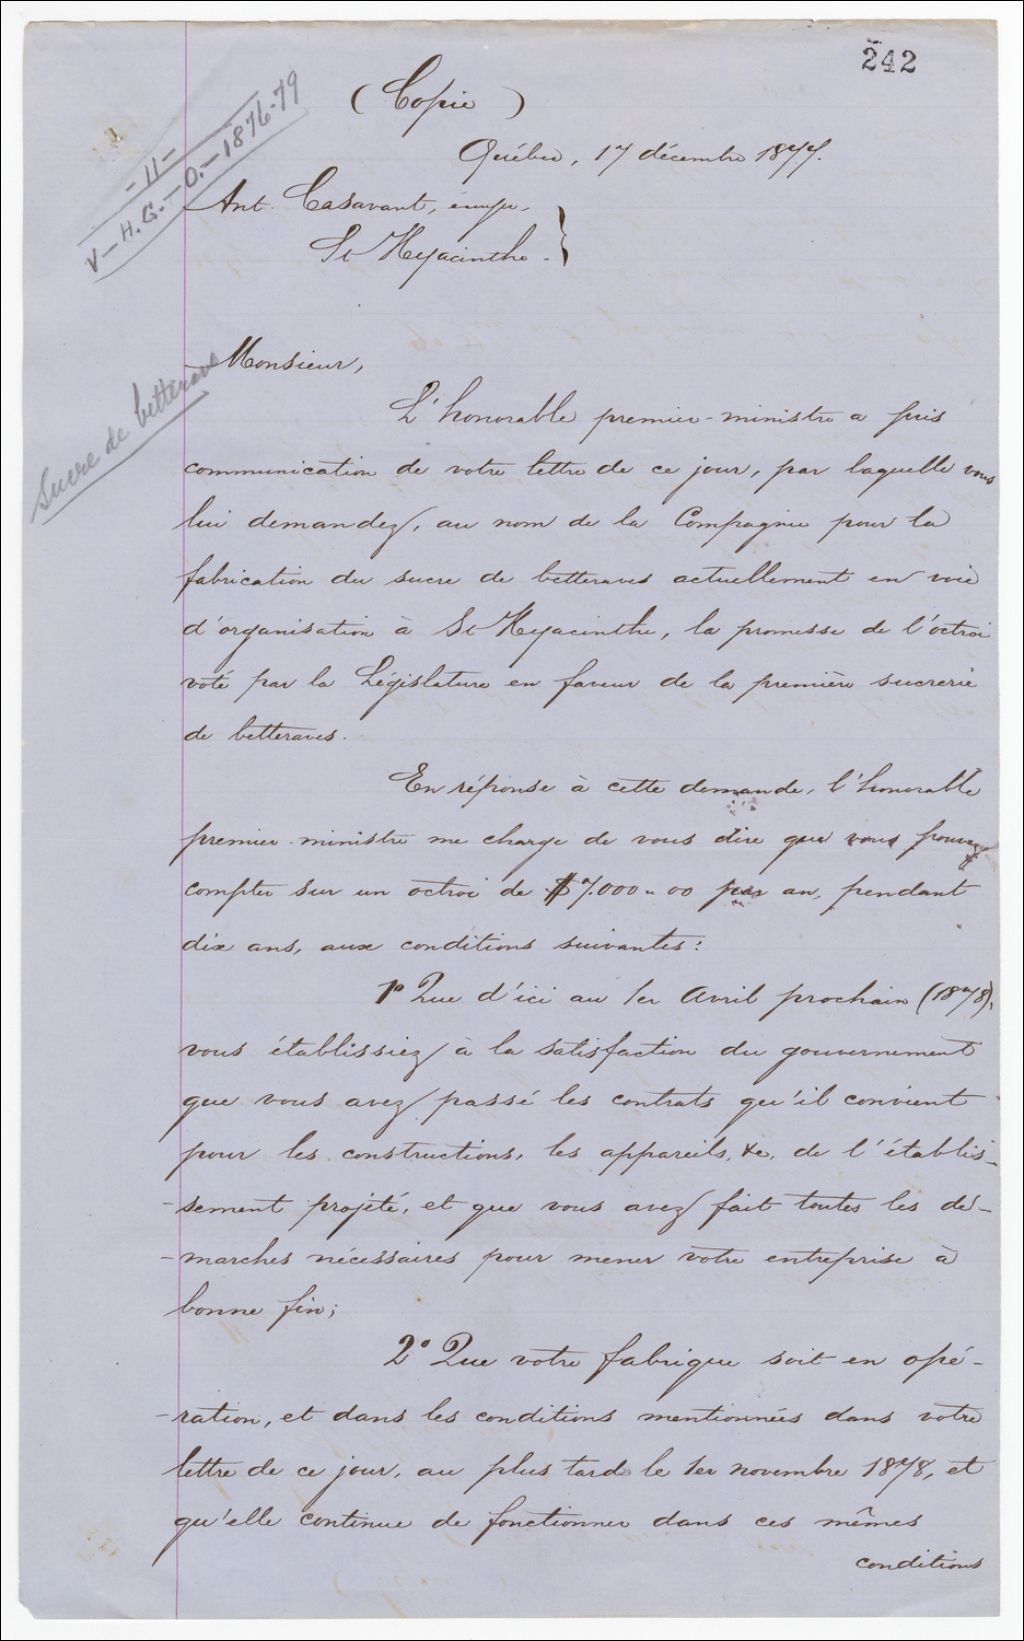 242
( Copie )
Québec, 17 décembre 1877.
- 11 -
V-H.G.-O.-1876-79
Ant. Casavant, écuyer,
St Hyacinthe. }
Monsieur,
Sucre de betterave
L'honorable premier-ministre a pris
communication de votre lettre de ce jour, par laquelle vous
lui demandez, au nom de la Compagnie pour la
fabrication du sucre de betteraves actuellement en voie
d'organisation à St Hyacinthe, la promesse de l'octroi
voté par la Législature en faveur de la première sucrerie
de betteraves.
En réponse à cette demande, l'honorable
premier-ministre me charge de vous dire que vous pouvez
compter sur un octroi de $7.000.00 par an, pendant
dix ans, aux conditions suivantes:
1º Que d'ici au 1er Avril prochain (1878),
vous établissiez à la satisfaction du gouvernement
que vous avez passé les contrats qu'il convient
pour les constructions, les appareils, &c, de l'établis-
-sement projeté, et que vous avez fait toutes les dé-
-marches nécessaires pour mener votre entreprise à
bonne fin;
2º Que votre fabrique soit en opé-
-ration, et dans les conditions mentionnées dans votre
lettre de ce jour, au plus tard le 1er novembre 1878, et
qu'elle continue de fonctionner dans ces mêmes
conditions